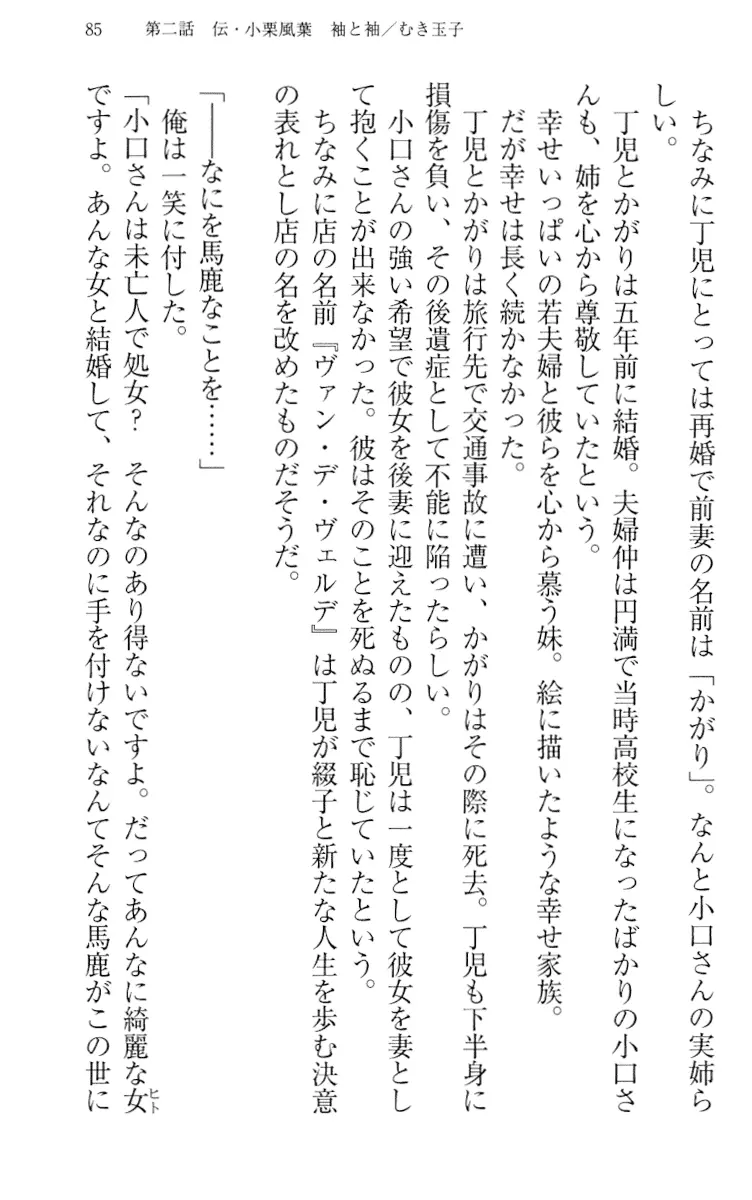 85　第二話　伝・小栗風葉　袖と袖／むき玉子
ちなみに丁児にとっては再婚で前妻の名前は「かがり」。なんと小口さんの実姉ら
しい。
丁児とかがりは五年前に結婚。夫婦仲は円満で当時高校生になったばかりの小口さ
んも、姉を心から尊敬していたという。
幸せいっぱいの若夫婦と彼らを心から慕う妹。絵に描いたような幸せ家族。
だが幸せは長く続かなかった。
丁児とかがりは旅行先で交通事故に遭い、かがりはその際に死去。丁児も下半身に
損傷を負い、その後遺症として不能に陥ったらしい。
小口さんの強い希望で彼女を後妻に迎えたものの、丁児は一度として彼女を妻とし
て抱くことが出来なかった。彼はそのことを死ぬるまで恥じていたという。
ちなみに店の名前『ヴァン・デ・ヴェルデ』は丁児が綴子と新たな人生を歩む決意
の表れとし店の名を改めたものだそうだ。
「――なにを馬鹿なことを……」
俺は一笑に付した。
「小口さんは未亡人で処女？　そんなのあり得ないですよ。だってあんなに綺麗な女ヒト
ですよ。あんな女と結婚して、それなのに手を付けないなんてそんな馬鹿がこの世に